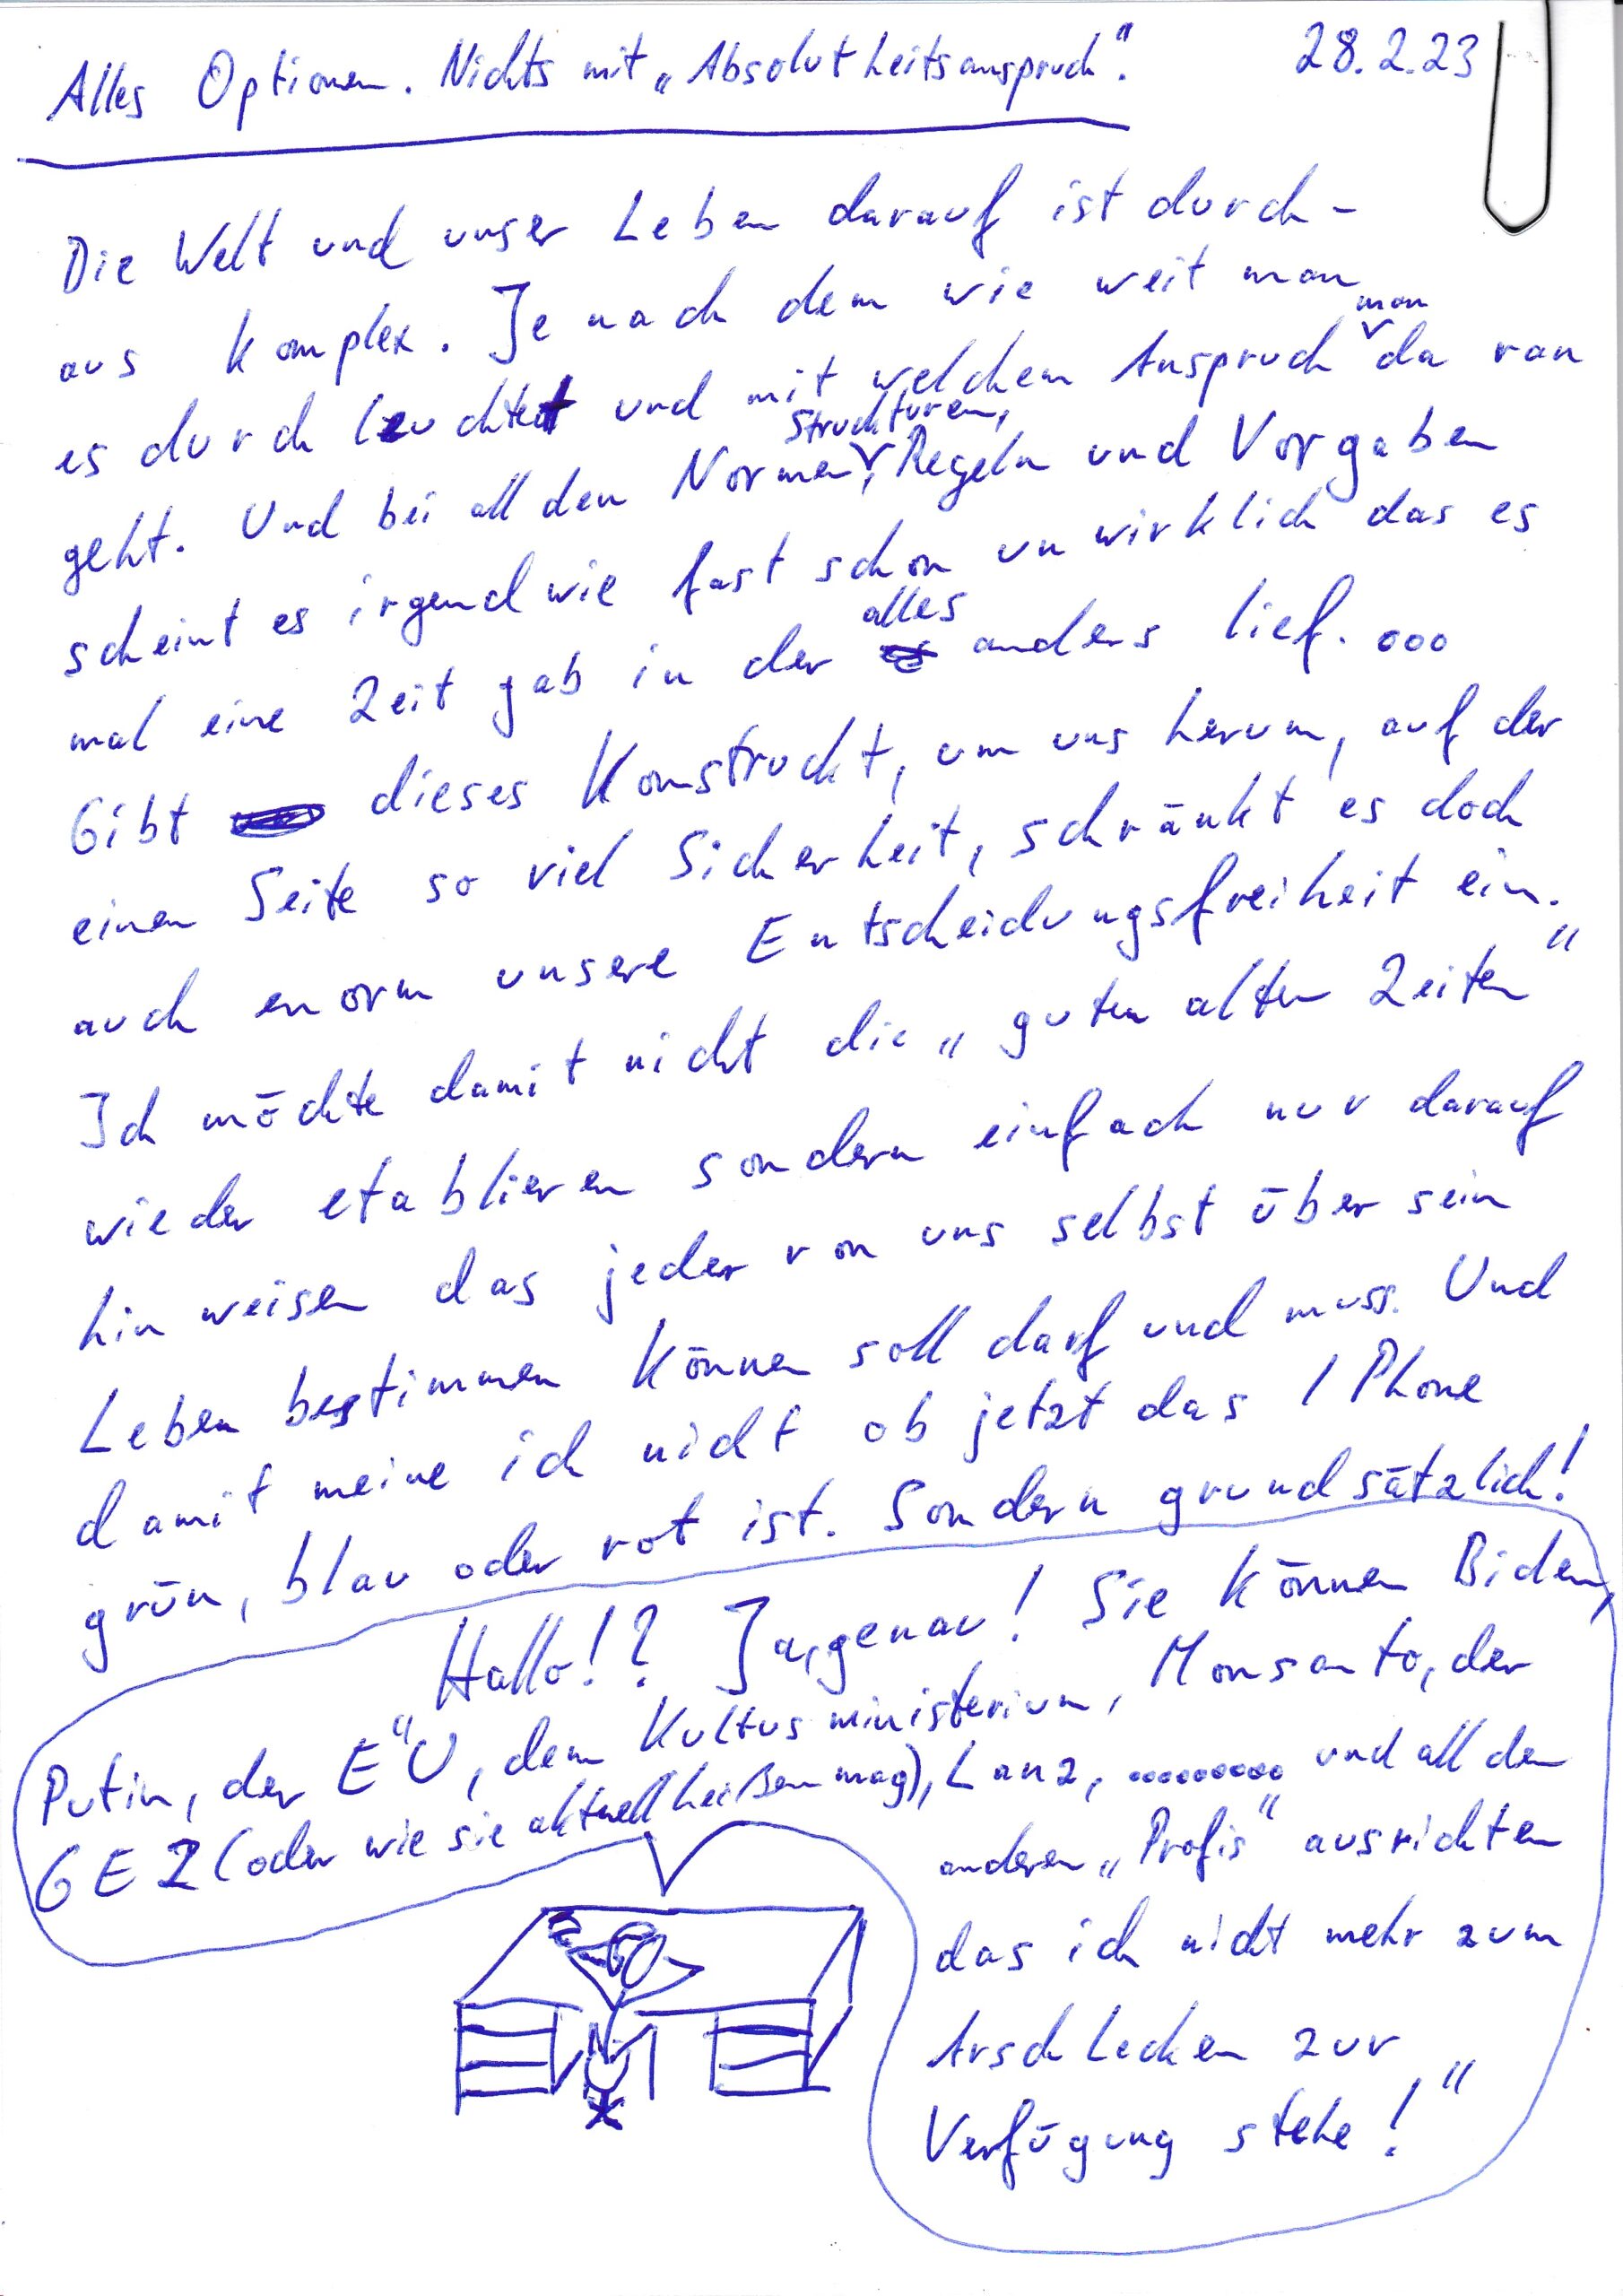 Alles Optionen. Nichts mit „Absolutheitsanspruch". 28.2.23
Die Welt und unser Leben darauf ist durch-
aus komplex. Je nach dem wie weit man
es durch leuchtet und mit welchem Anspruch man da ran
geht. Und bei all den Normen, Strukturen, Regeln und Vorgaben
scheint es irgendwie fast schon unwirklich das es
mal eine Zeit gab in der alles anders lief. ooo
Gibt dieses Konstruckt, um uns herum, auf der
einen Seite so viel Sicherheit, schränkt es doch
auch enorm unsere Entscheidungsfreiheit ein.
Ich möchte damit nicht die „guten alten Zeiten"
wieder etablieren sondern einfach nur darauf
hin weisen das jeder von uns selbst über sein
Leben bestimmen können soll darf und muss. Und
damit meine ich nicht ob jetzt das I Phone
grün, blau oder rot ist. Sondern grundsätzlich!
Hallo!? Ja, genau! Sie können Biden,
Putin, der E"U, dem Kultusministerium, Monsanto, der
GEZ (oder wie sie aktuell heißen mag), Lanz, ooooooooo und all den
anderen „Profis" ausrichten
das ich nicht mehr zum
Arschlecken zur
Verfügung stehe!"